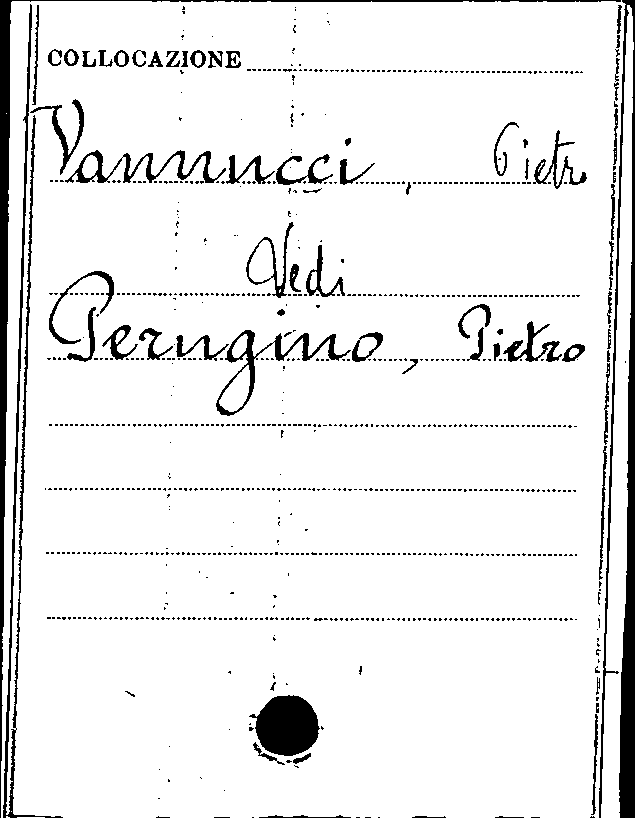 COLLOCAZIONE
Vannucci, Pietro
Vedi
Perugino, Pietro